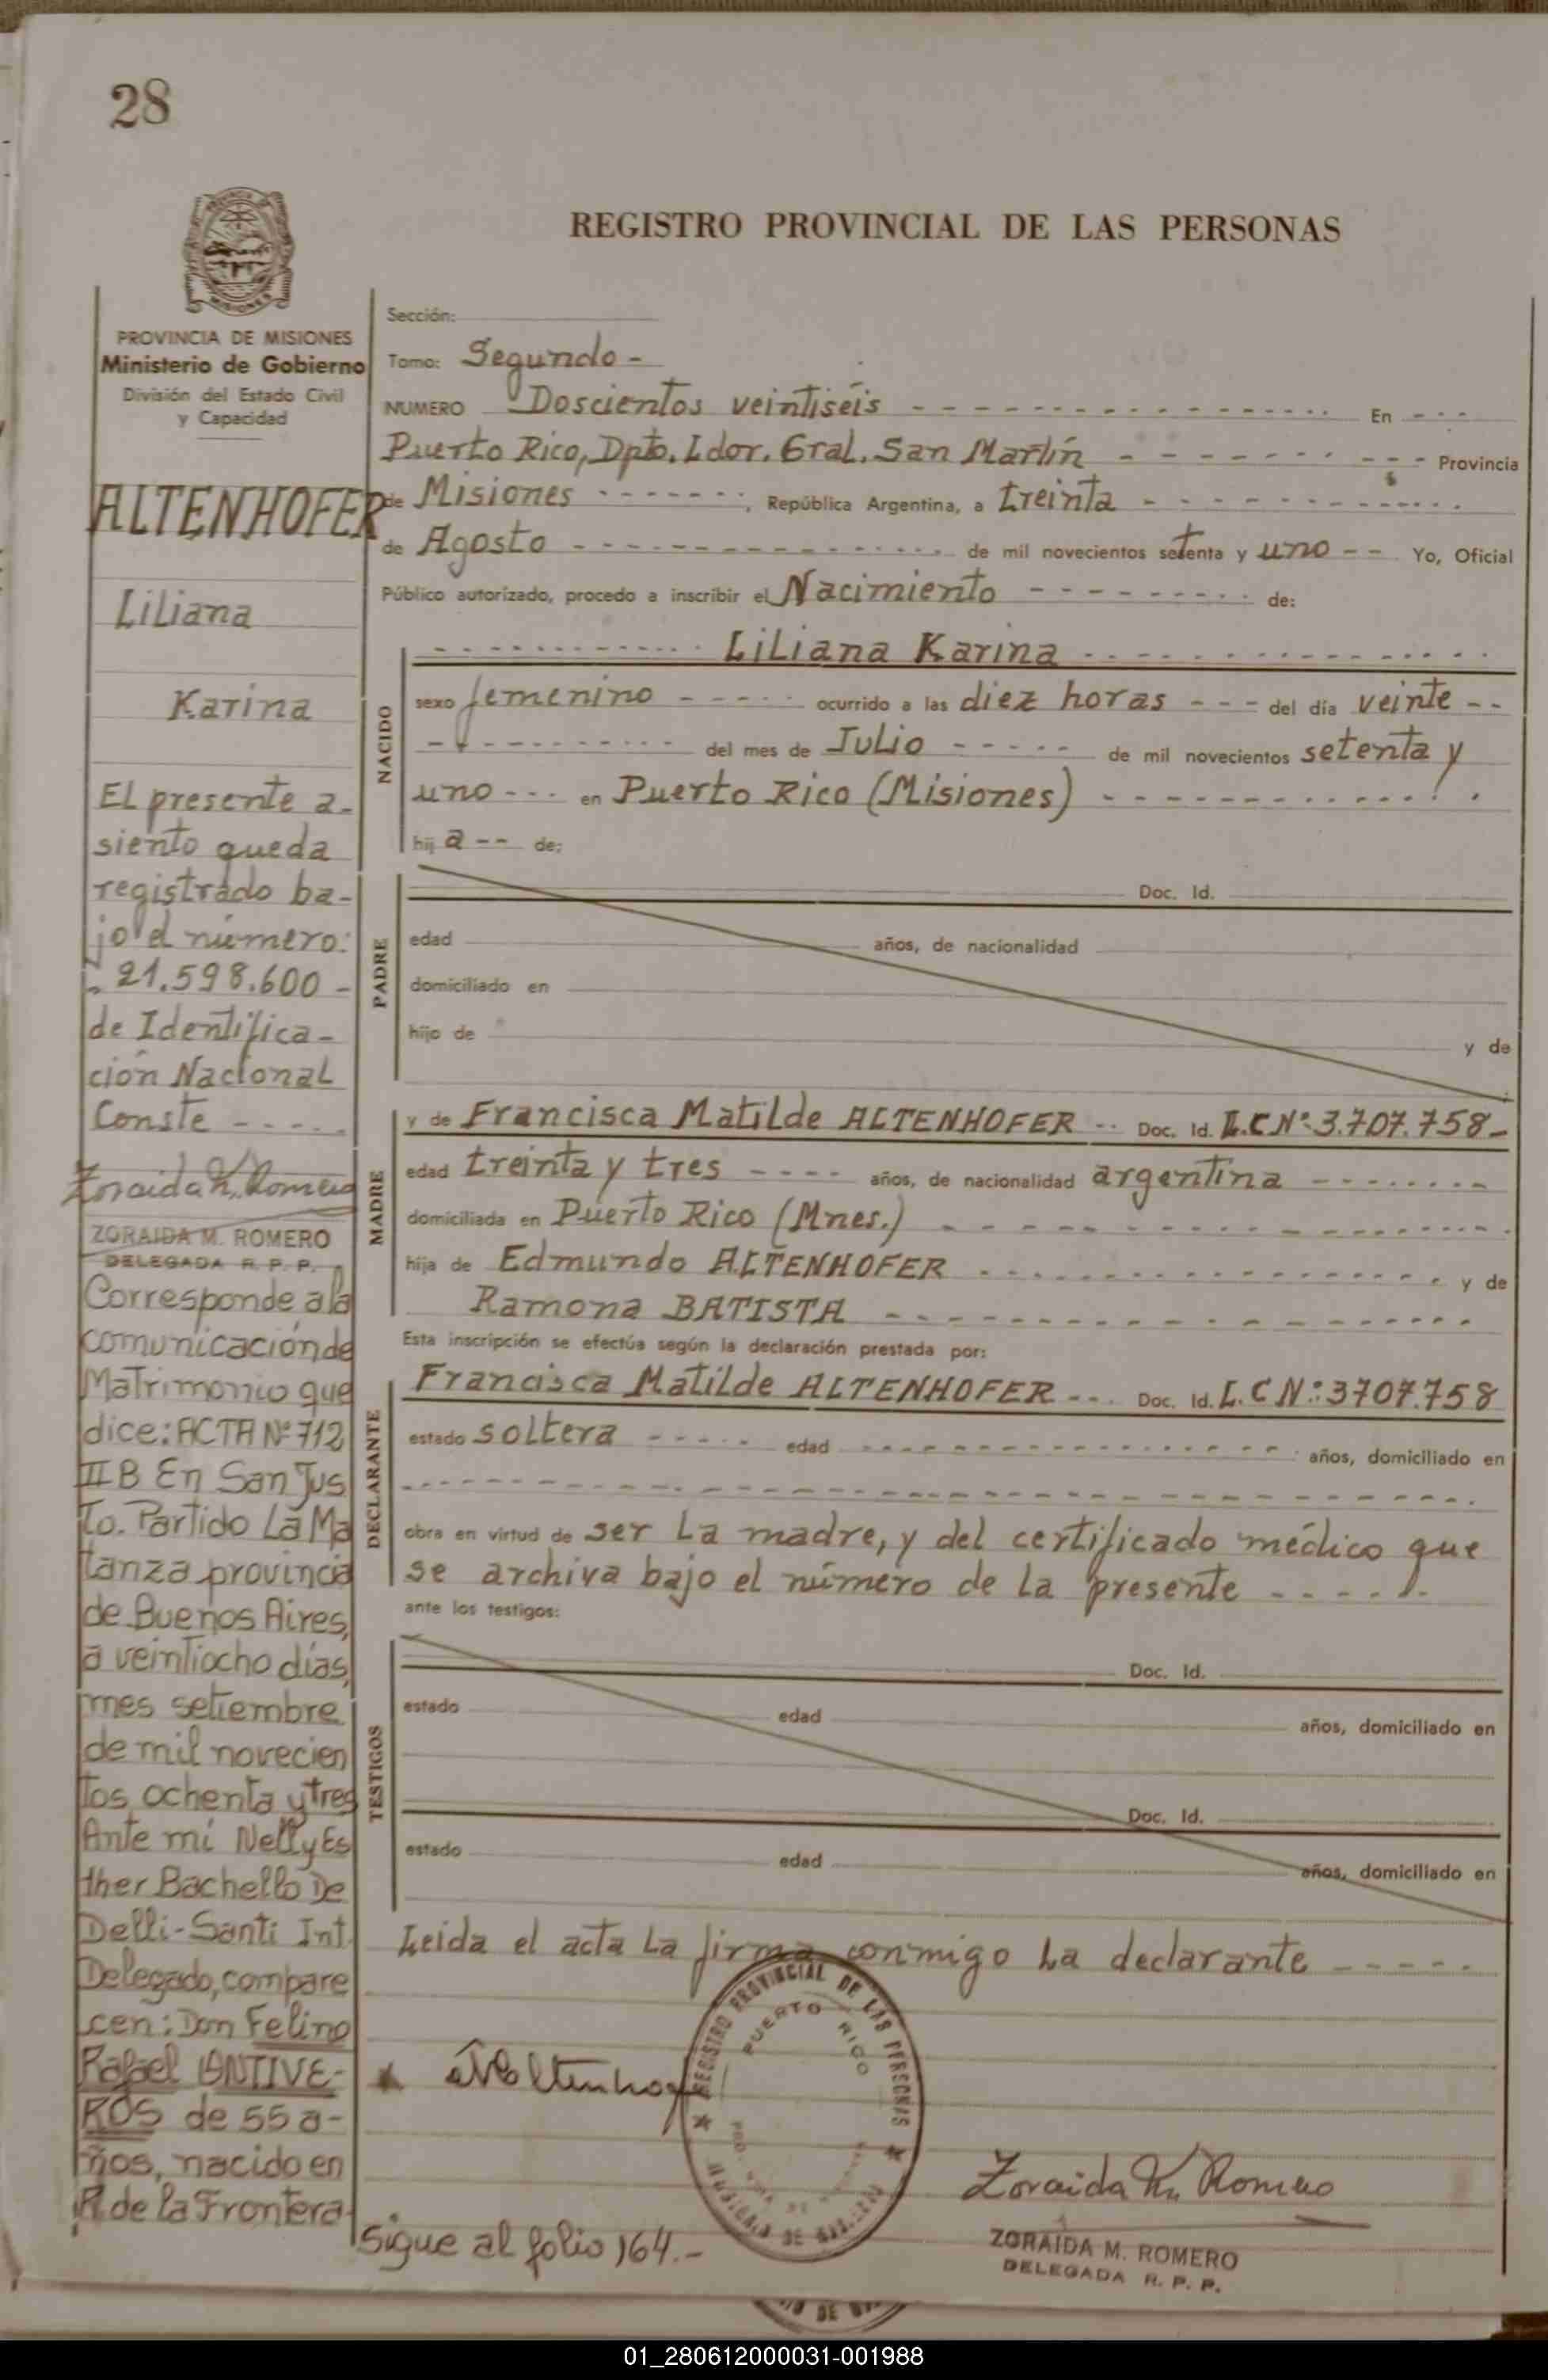 28
REGISTRO PROVINCIAL DE LAS PERSONAS
MISIONES
PROVINCIA DE MISIONES
Ministerio de Gobierno
División del Estado Civil
y Capacidad
ALTENHOFER
Liliana
Karina
El presente a-
siento queda
registrado ba-
jo el número:
21.598.600 -
de Identifica-
ción Nacional
Conste - - - - -
Zoraida M. Romero
ZORAIDA M. ROMERO
DELEGADA R. P. P.
Corresponde a la
comunicación de
Matrimonio que
dice: ACTA Nº 712
III B En San Jus
to. Partido La Ma
tanza provincia
de Buenos Aires,
a veintiocho días,
mes setiembre
de mil novecien
tos ochenta y tres
Ante mí Nelly Es
ther Bachello De
Delli-Santi Int.
Delegado, compare
cen: Don Felino
Rafael ONTIVE-
ROS de 55 a-
ños, nacido en
R. de la Frontera
Sección:
Tomo: Segundo -
NUMERO Doscientos veintiséis - - - En - - -
Puerto Rico, Dpto. Ldor. Gral. San Martín - - - Provincia
de Misiones - - - , República Argentina, a treinta - - -
de Agosto - - - de mil novecientos setenta y uno - - Yo, Oficial
Público autorizado, procedo a inscribir el Nacimiento - - - de:
NACIDO
- - - Liliana Karina - - -
sexo femenino - - - ocurrido a las diez horas - - - del día veinte - -
- - - del mes de Julio - - - de mil novecientos setenta y
uno - - - en Puerto Rico (Misiones) - - -
hij a - - de:
PADRE
Doc. Id.
edad años, de nacionalidad
domiciliado en
hijo de y de
MADRE
y de Francisca Matilde ALTENHOFER - - Doc. Id. L.C Nº: 3.707.758 -
edad treinta y tres - - - - años, de nacionalidad argentina - - -
domiciliada en Puerto Rico (Mnes.) - - -
hija de Edmundo ALTENHOFER - - - y de
Ramona BATISTA - - -
Esta inscripción se efectúa según la declaración prestada por:
DECLARANTE
Francisca Matilde ALTENHOFER - - - Doc. Id. L.C Nº: 3707.758
estado soltera - - - edad - - - años, domiciliado en
- - -
obra en virtud de ser la madre, y del certificado médico que
se archiva bajo el número de la presente - - -
ante los testigos:
TESTIGOS
Doc. Id.
estado edad años, domiciliado en
Doc. Id.
estado edad años, domiciliado en
Leida el acta la firma conmigo la declarante - - - - -
REGISTRO PROVINCIAL DE LAS PERSONAS
PUERTO RICO
Zoraida M. Romero
ZORAIDA M. ROMERO
DELEGADA R. P. P.
Sigue al folio 164.-
01_280612000031-001988